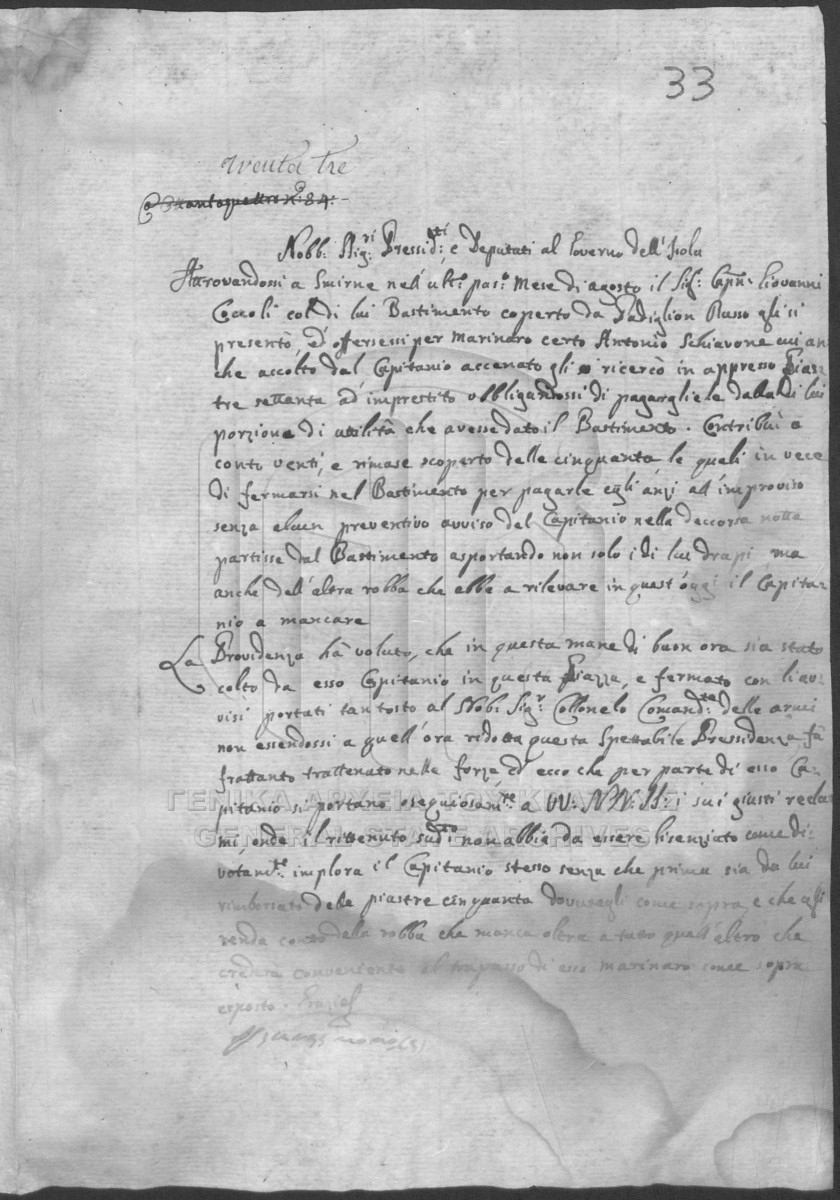 33
Trenta Tre
Nobb: Sig:ri Pressid:ti, e Deputati al Governo dell'Isola
Attrovandossi a Smirne nell'ult:o pas:o Mese di agosto il Sig:r Cap:n Giovanni
Coccoli col di lui Bastimento coperto da Padiglion Russo gli si
presentò, ed offersessi per marinaro certo Antonio Schiavone cui an
che accolto dal Capitanio accenato gli ricercò in appresso Pias
tre settanta ad imprestito obbligandossi di pagargliele dalla di lui
porzione di utilità che avesse dato il Bastimento. Contribuì a
conto venti, e rimase scoperto delle cinquanta le queli in vece
di fermarsi nel Bastimento per pagarle egli anzi all'improviso
senza elcun preventivo avviso del Capitanio nella deccorsa notte
partisse dal Bastimento asportando non solo i di lui drapi, ma
anche dell'altra robba che ebbe a rilevare in quest'oggi il Capita
nio a mancare
La Providenza hà voluto, che in questa mane di buon ora sia stato
colto da esso Capitanio in questa Piazza, e fermato con li av
visi portati tantosto al Nob: Sig:r Collonelo Comand:te delle armi
non essendossi a quell'ora ridotta questa Spettabile Pressidenza, fù
frattanto trattenuto nelle forze ed ecco che per parte di esso Ca
pitanio si portano osequiosam:te a VV: NN: II: i sui giusti recla
mi onde il rittenuto sud:to non abbia da essere lisenziato come di
votam:te implora il Capitanio stesso senza che prima sia da lui
rimborsato delle piastre cinquanta dovutegli come sopra, e che egli
renda conto della robba che manca oltre a tutto quell'altro che
crederà conveniente al trapasso di esso marinaro come sopra
esposto. Grazie
ΓΕΝΙΚΑ ΑΡΧΕΙΑ ΤΟΥ ΚΡΑΤΟΥΣ
GENERAL STATE ARCHIVES